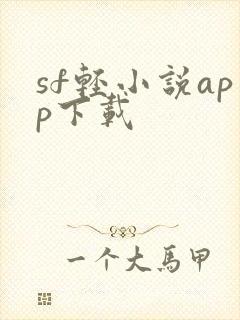 sf軽小說ap
p下載
一个大馬甲